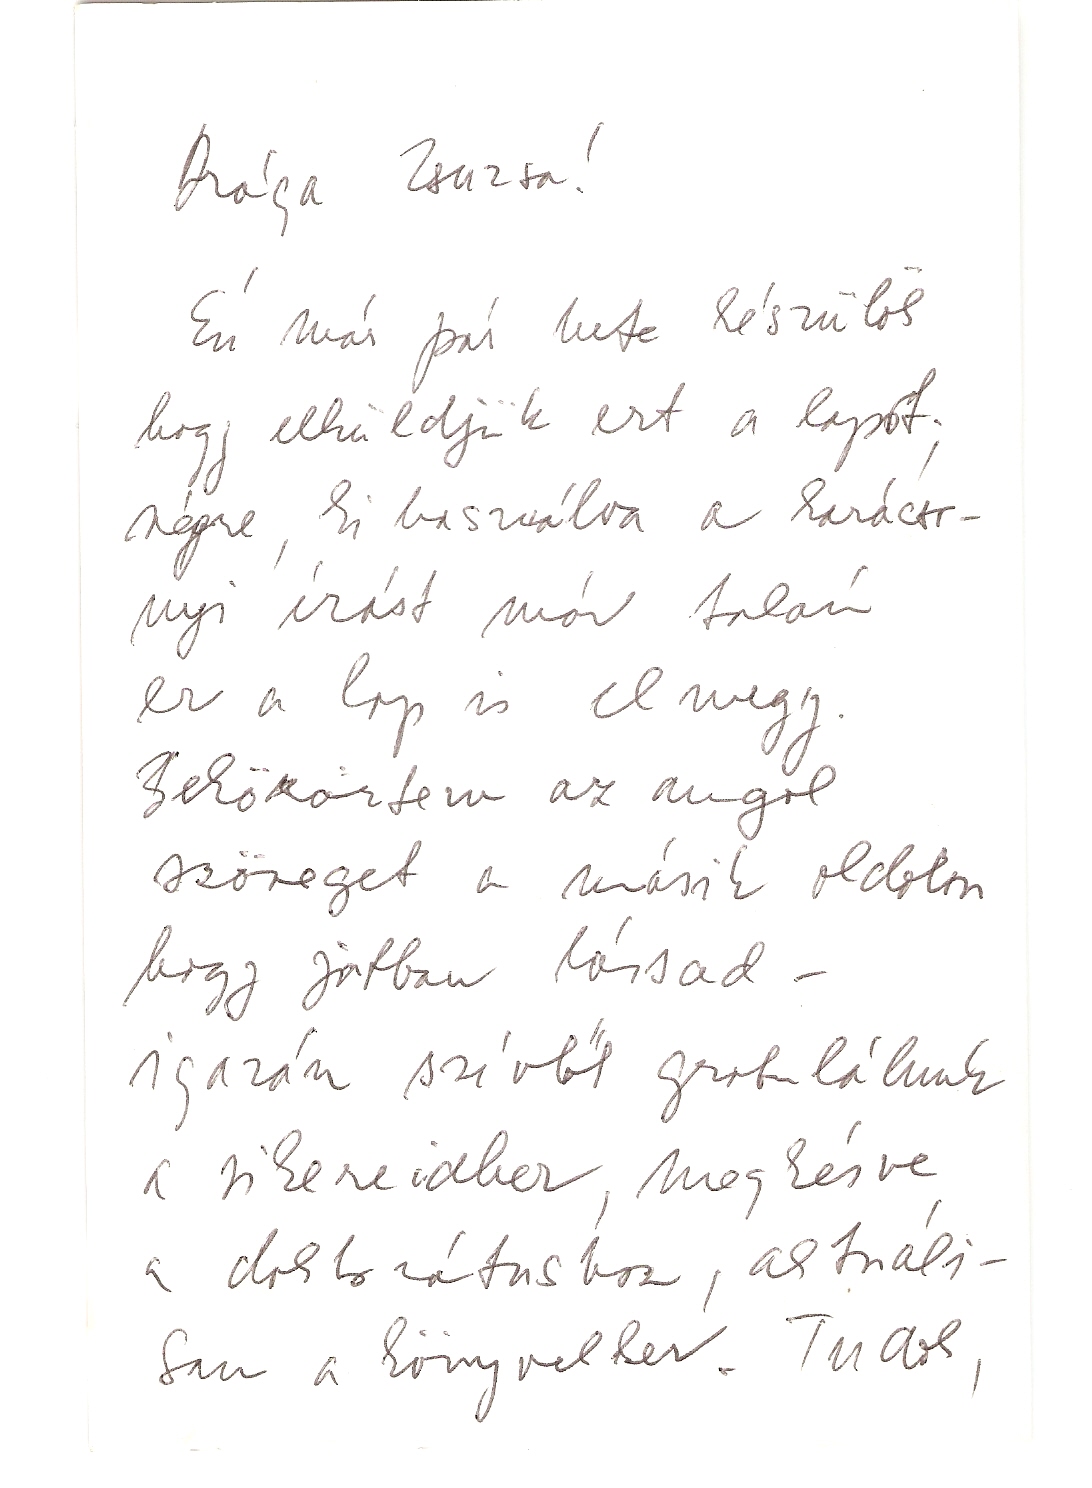 Drága Zsuzsa!
Én már pár hete készülök
hogy elküldjük ezt a lapot,
végre, kihasználva a karácso-
nyi írást már talán
ez a lap is elmegy.
Bekököztem az angol
szöveget a másik oldalon
hogy jobban lássad –
igazán szívből gratulálunk
a sikereidhez, megkésve
a doktorátushoz, aktuáli-
san a könyvekhez. Tudok,